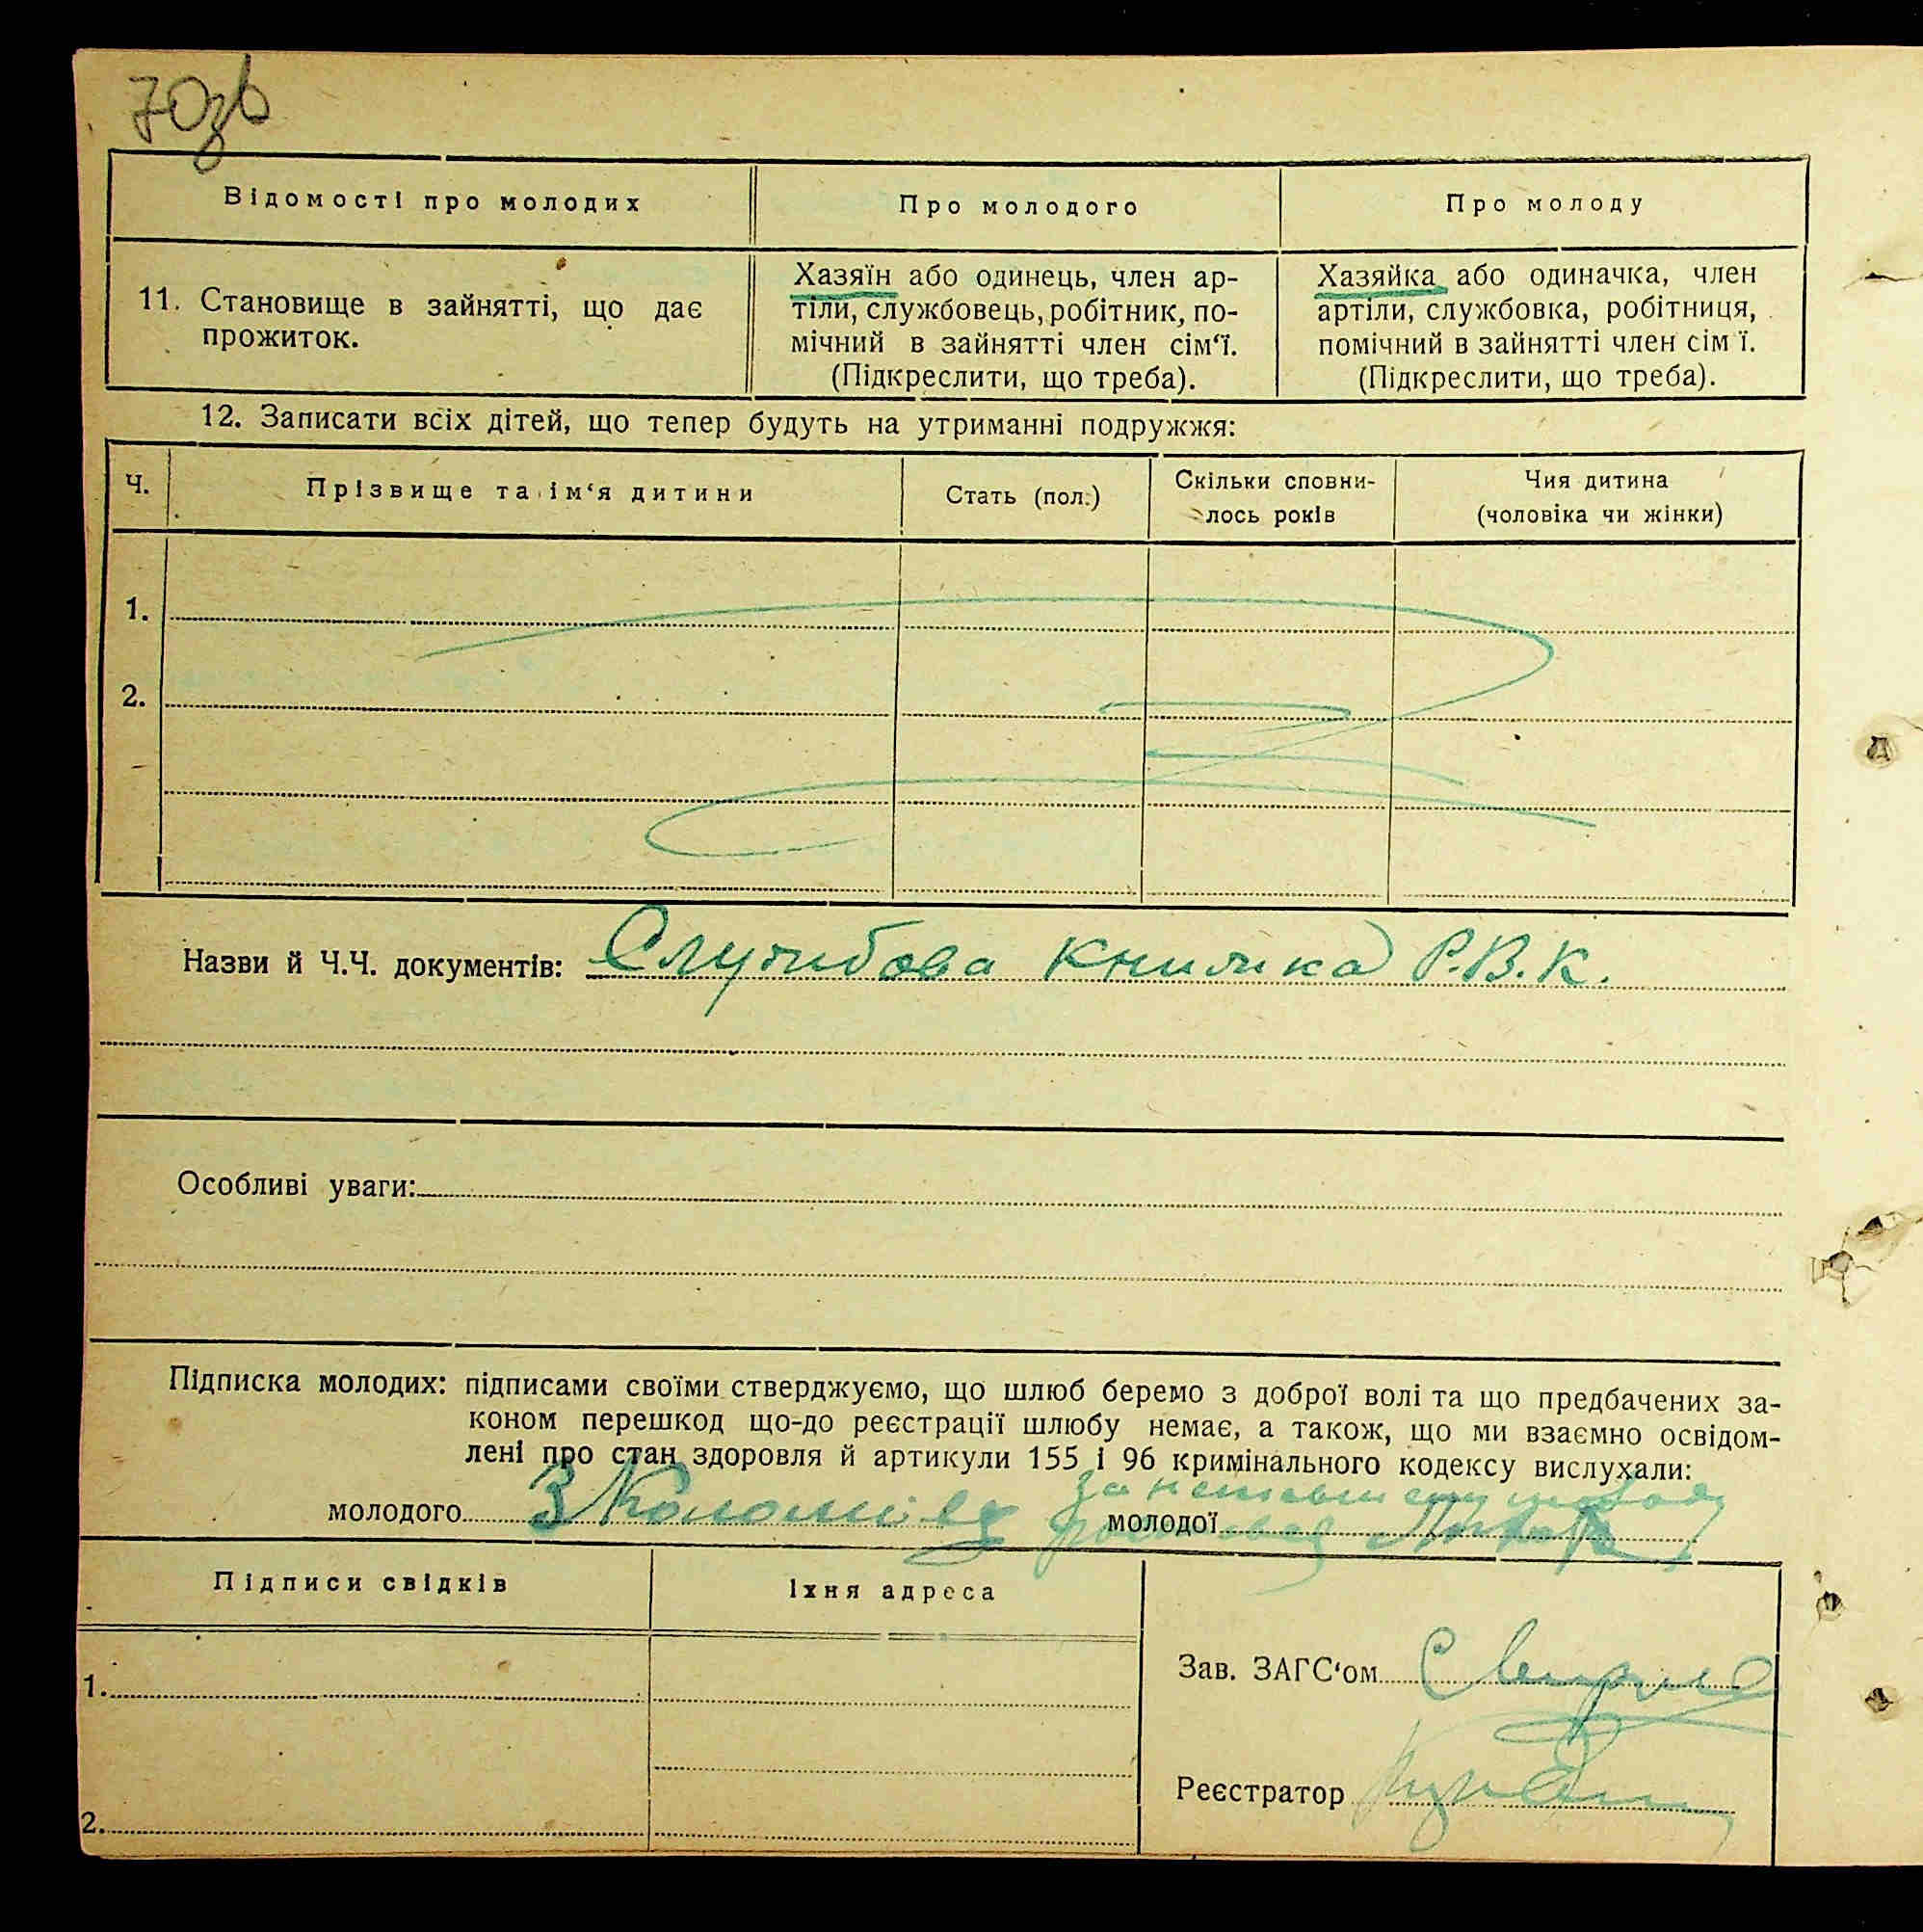 70зв
Відомості про молодих
Про молодого
Про молоду
11. Становище в зайнятті, що дає
прожиток.
Хазяїн або одинець, член ар-
тіли, службовець, робітник, по-
мічний в зайнятті член сім‘ї.
(Підкреслити, що треба).
Хазяйка або одиначка, член
артіли, службовка, робітниця,
помічний в зайнятті член сім ї.
(Підкреслити, що треба).
12. Записати всіх дітей, що тепер будуть на утриманні подружжя:
Ч.
Прізвище та ім‘я дитини
Стать (пол.)
Скільки сповни-
лось років
Чия дитина
(чоловіка чи жінки)
1.
2.
Назви й Ч.Ч. документів: Службова книжка Р.В.К.
Особливі уваги:
Підписка молодих: підписами своїми стверджуємо, що шлюб беремо з доброї волі та що предбачених за-
коном перешкод що-до реєстрації шлюбу немає, а також, що ми взаємно освідом-
лені про стан здоровля й артикули 155 і 96 кримінального кодексу вислухали:
молодого
молодої
Підписи свідків
Їхня адреса
1.
2.
Зав. ЗАГС‘ом
Реєстратор